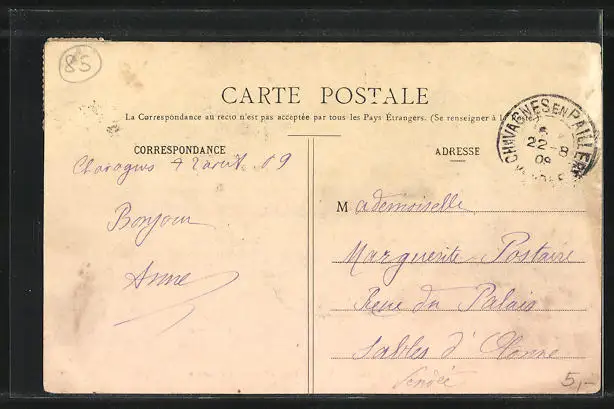 85
CARTE POSTALE
La Correspondance au recto n'est pas acceptée par tous les Pays Étrangers. (Se renseigner à la Poste)
CORRESPONDANCE
ADRESSE
CHAVAGNES EN PAILLERS
22-8
09
VENDÉE
août 09
Bonjour
Anne
Mademoiselle
Marguerite Postaire
Rue du Palais
Sables d'Olonne
Vendée
5,-